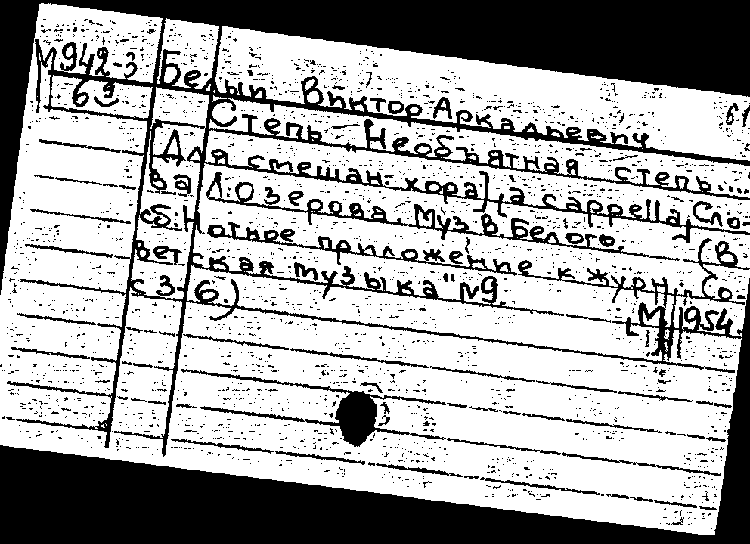 М942-3
69
Белый, Виктор Аркадьевич
61
Степь „Необъятная степь....
[Для смешан. хора], a cappella, Сло-
ва Л. Озерова. Муз В. Белого.
(В
сб: Нотное приложение к журн. „Со-
ветская музыка" №9.
с 3-6.)
М 1954.